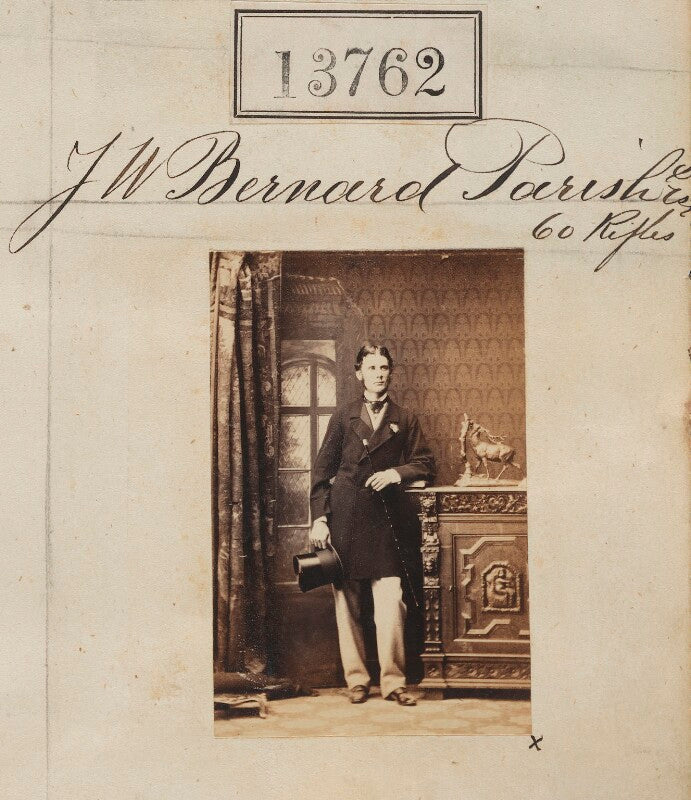 13762
J W Bernard Parish
60 Rifles
x